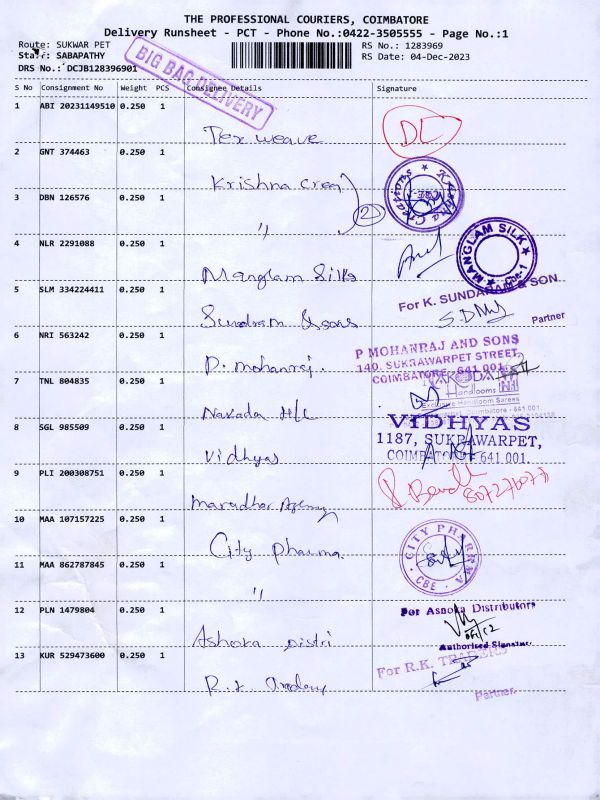 THE PROFESSIONAL COURIERS, COIMBATORE
Delivery Runsheet - PCT - Phone No.:0422-3505555 - Page No.:1
Route: SUKWAR PET
RS No.: 1283969
Staff: SABAPATHY
RS Date: 04-Dec-2023
DRS No.: DCJB128396901
BIG BAG DELIVERY
S No Consignment No Weight PCS Consignee Details Signature
1 ABI 20231149510 0.250 1
Tex weave
DC
2 GNT 374463 0.250 1
Krishna Crea
Krishna Creations
CBE
3 DBN 126576 0.250 1
"
2
4 NLR 2291088 0.250 1
Manglam Silks
MANGLAM SILK
Cbe-1
5 SLM 334224411 0.250 1
Sundram & sons
For K. SUNDARAM & SON
Partner
6 NRI 563242 0.250 1
P. mohanraj.
P MOHANRAJ AND SONS
140, SUKRAWARPET STREET,
COIMBATORE 641 001.
7 TNL 804835 0.250 1
Nakada H/L
NAKODA
Handlooms
Exclusive Handloom Sarees
Coimbatore - 641 001
8 SGL 985509 0.250 1
Vidhyas
VIDHYAS
1187, SUKRAWARPET,
COIMBATORE 641 001.
9 PLI 200308751 0.250 1
Maradhar Agency
10 MAA 107157225 0.250 1
City pharma.
CITY PHARMA
CBE
11 MAA 862787845 0.250 1
"
12 PLN 1479804 0.250 1
Ashoka Distri
For Ashoka Distributors
Authorised Signatory
13 KUR 529473600 0.250 1
R.K
For R.K. TRADERS
Partner.